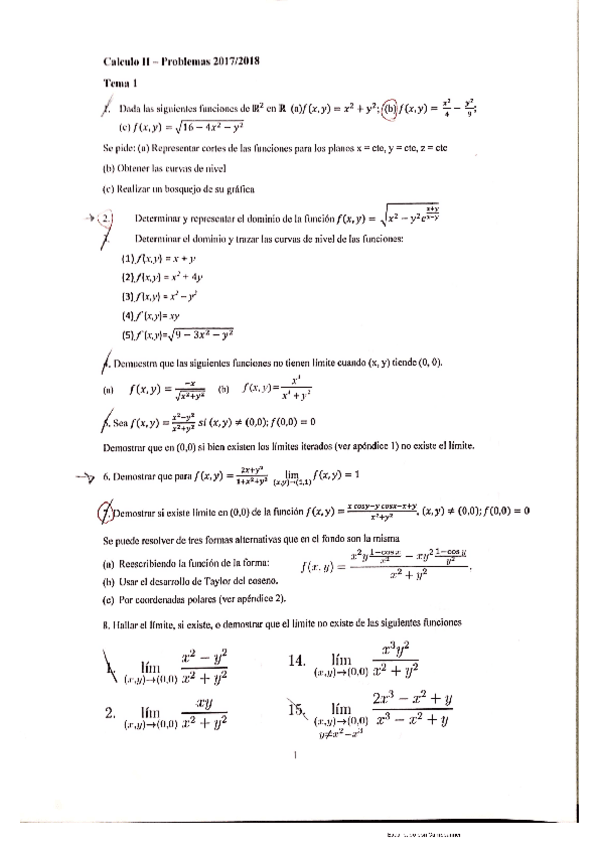 Calculo II – Problemas 2017/2018
Tema 1
1. Dada las siguientes funciones de ℝ² en ℝ (a)f(x,y) = x² + y²; (b) f(x,y) = x²/4 − y²/9;
(c) f(x,y) = √(16 − 4x² − y²)
Se pide: (a) Representar cortes de las funciones para los planos x = cte, y = cte, z = cte
(b) Obtener las curvas de nivel
(c) Realizar un bosquejo de su gráfica
2. Determinar y representar el dominio de la función f(x,y) = √(x² − y²e^((x+y)/(x−y)))
Determinar el dominio y trazar las curvas de nivel de las funciones:
(1) f(x,y) = x + y
(2) f(x,y) = x² + 4y
(3) f(x,y) = x² − y²
(4) f(x,y)= xy
(5) f(x,y)=√(9 − 3x² − y²)
4. Demuestra que las siguientes funciones no tienen límite cuando (x, y) tiende (0, 0).
(a) f(x,y) = −x/√(x²+y²) (b) f(x,y)= x⁴/(x⁴ + y²)
5. Sea f(x,y) = (x²−y²)/(x²+y²) si (x,y) ≠ (0,0); f(0,0) = 0
Demostrar que en (0,0) si bien existen los límites iterados (ver apéndice 1) no existe el límite.
6. Demostrar que para f(x,y) = (2x+y²)/(1+x²+y²) lim (x,y)→(1,1) f(x,y) = 1
7. Demostrar si existe límite en (0,0) de la función f(x,y) = (x cosy−y cosx−x+y)/(x²+y²), (x,y) ≠ (0,0); f(0,0) = 0
Se puede resolver de tres formas alternativas que en el fondo son la misma
(a) Reescribiendo la función de la forma: f(x,y) = (x²y (1−cos x)/x² − xy² (1−cos y)/y²)/(x² + y²).
(b) Usar el desarrollo de Taylor del coseno.
(c) Por coordenadas polares (ver apéndice 2).
8. Hallar el límite, si existe, o demostrar que el límite no existe de las siguientes funciones
1. lím (x,y)→(0,0) (x² − y²)/(x² + y²)
14. lím (x,y)→(0,0) x³y²/(x² + y²)
2. lím (x,y)→(0,0) xy/(x² + y²)
15. lím (x,y)→(0,0) y≠x²−x³ (2x³ − x² + y)/(x³ − x² + y)
1